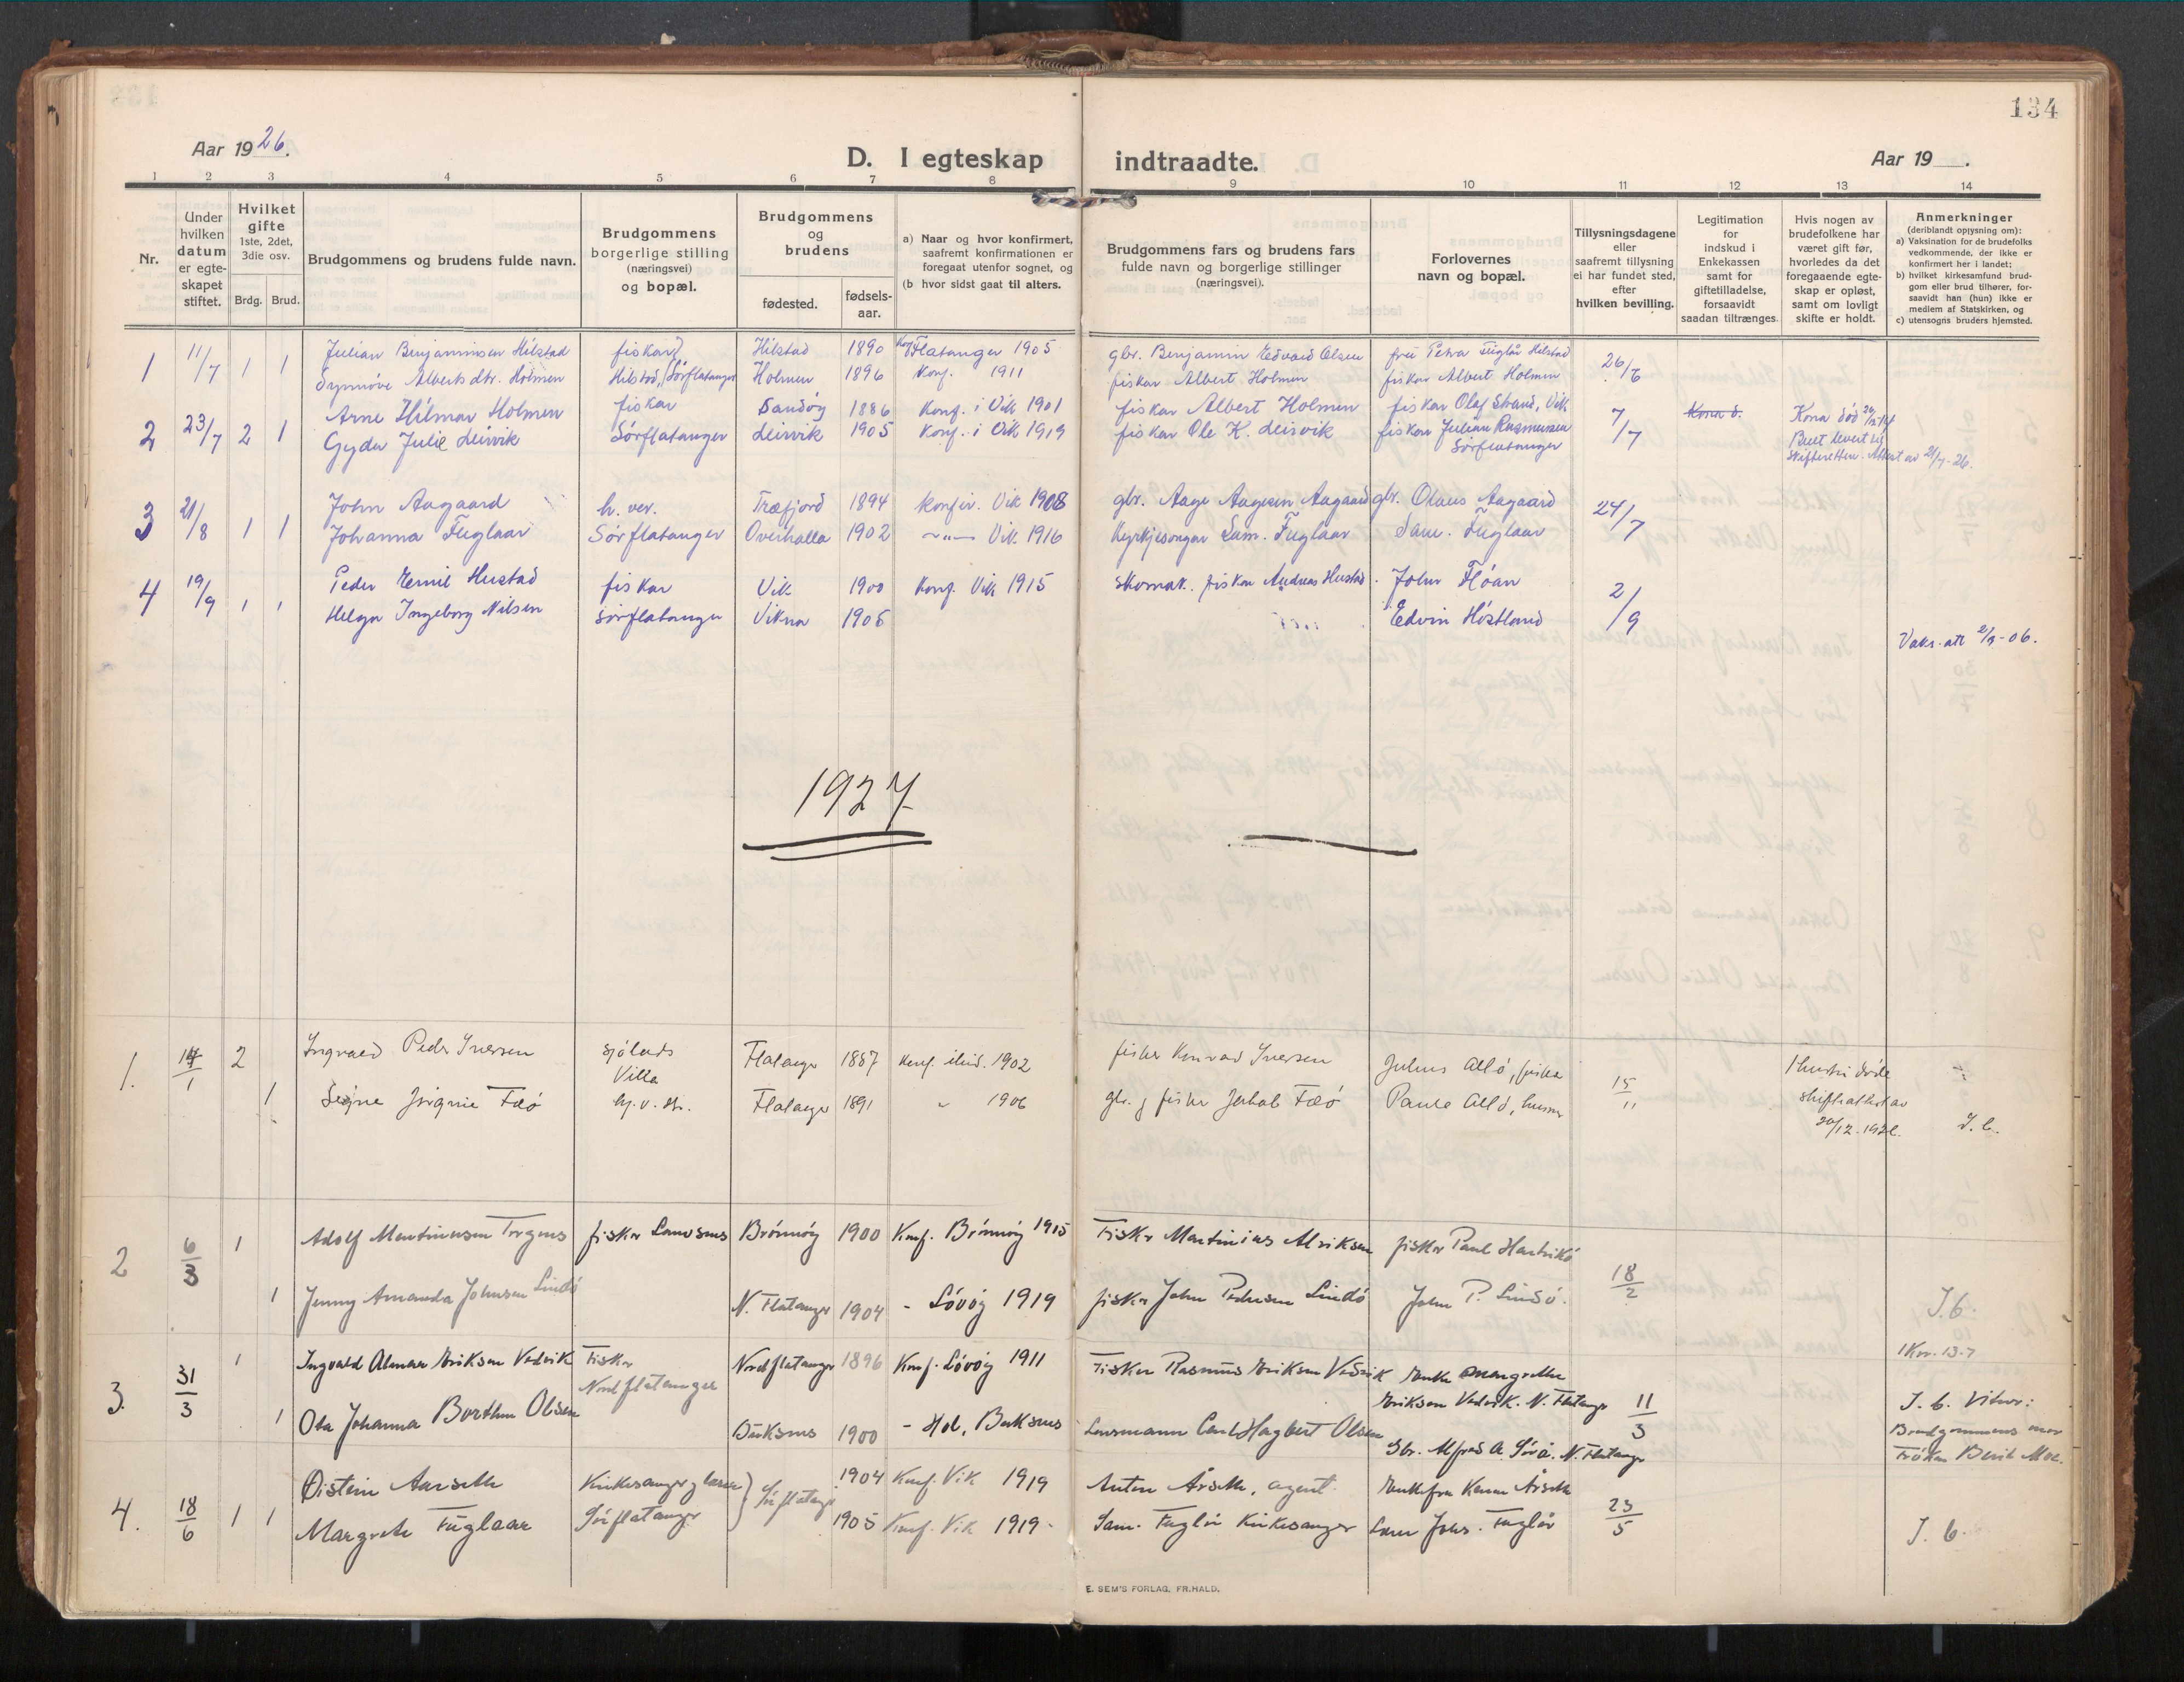 134
Aar 1926.
D. I egteskap indtraadte.
Aar 19 .
1 2 3 4 5 6 7 8 9 10 11 12 13 14
Nr.
Under hvilken datum er egteskapet stiftet.
Hvilket gifte 1ste, 2det, 3die osv.
Brdg. Brud.
Brudgommens og brudens fulde navn.
Brudgommens borgerlige stilling (næringsvei) og bopæl.
Brudgommens og brudens
fødested. fødsels-aar.
a) Naar og hvor konfirmert, saafremt konfirmationen er foregaat utenfor sognet, og
(b hvor sidst gaat til alters.
Brudgommens fars og brudens fars fulde navn og borgerlige stillinger (næringsvei).
Forlovernes navn og bopæl.
Tillysningsdagene eller saafremt tillysning ei har fundet sted, efter hvilken bevilling.
Legitimation for indskud i Enkekassen samt for giftetilladelse, forsaavidt saadan tiltrænges.
Hvis nogen av brudefolkene har været gift før, hvorledes da det foregaaende egteskap er opløst, samt om lovligt skifte er holdt.
Anmerkninger (deriblandt opjysning om):
a) Vaksination for de brudefolks vedkommende, der ikke er konfirmert her i landet;
b) hvilket kirkesamfund brudgom eller brud tilhører, forsaavidt han (hun) ikke er medlem af Statskirken, og
c) utensogns bruders hjemsted.
1 11/7 1 1 Julian Benjaminsen Hilstad fiskar Hilstad 1890 Konf Flatanger 1905 gbr. Benjamin Edvard Olsen fru Petra Fuglår Hilstad 26/6
Synnöve Albertsdtr. Holmen Hilstad, Sörflatanger Holmen 1896 Konf. 1911 fiskar Albert Holmen fiskar Albert Holmen
2 23/7 2 1 Arne Hilmar Holmen fiskar Sandöy 1886 Konf. i Vik 1901 fiskar Albert Holmen fiskar Olaf Strand, Vik 7/7 Kona d. Kona död
Gyda Julie Leirvik Sörflatanger Leirvik 1905 Konf. i Vik 1919 fiskar Ole K. Leirvik fiskar Julian Rasmussen Buet levert til
Sörflatanger Skifteretten. Attest av 21/7-26.
3 21/8 1 1 John Aagaard h. ver. Træfjord 1894 Konfir. Vik 1908 gbr. Aage Aagesen Aagaard gbr. Olaus Aagaard 24/7
Johanna Fuglaar Sörflatanger Overhalla 1902 -"- Vik 1916 Kyrkjesongar Sam. Fuglaar Sam. Fuglaar
4 19/9 1 1 Peder Emil Hustad fiskar Vik 1900 Konf. Vik 1915 skomak. fiskar Andreas Hustad. John Flöan 2/9
Helga Ingeborg Nilsen Sörflatanger Vikna 1905 Edvin Höstland
Vaks. att -06.
1927
1. 14/1 2 Ingvald Peder Iversen Flatanger 1887 Konf. 1902 fisker Konrad Iversen Julius Allö, fisker 15/11 Hustru döde
Villa skifteattest av
1 Signe Jörgine Fæö Flatanger 1891 " 1906 gbr. og fisker Jakob Fæö Paule Allö, 20/12.1926. J. b.
2 6/3 1 Adolf Martinusen Torgnes fisker Lauvsnes Brönnöy 1900 Konf. Brönnöy 1915 Fisker Martinius Alriksen fisker Paul Hartvikö 18/2
1 Jenny Amanda Johnsen Lindö N. Flatanger 1904 - Lövöy 1919 fisker John Pedersen Lindö John P. Lindö. J. b.
3. 31/3 1 Ingvald Almar Eriksen Vedvik Fisker Nordflatanger 1896 Konf. Lövöy 1911 Fisker Rasmus Eriksen Vedvik Enke Margrethe 1 Kor. 13.7
Nordflatanger Eriksen Vedvik. N. Flatanger 11/3 J. b. Vitner:
1 Ola Johanna Borthen Olsen Buksnes 1900 - Hol, Buksnes Lensmann Carl Hagbert Olsen Brudgommens mor
Gbr. Alfred A. Sörå. N. Flatanger Fröken Berit Moe.
4. 18/6 1 1 Øistein Aarseth Kirkesanger og lærer 1904 Konf. Vik 1919 Anton Årseth, agent. Enkefru Årseth 23/5
Margrete Fuglaar Sörflatanger Sörflatanger 1905 Konf. Vik 1919. Sam. Fuglår Kirkesanger Lærer Johs. Fuglår J. b.
E. SEM'S FORLAG, FR.HALD.